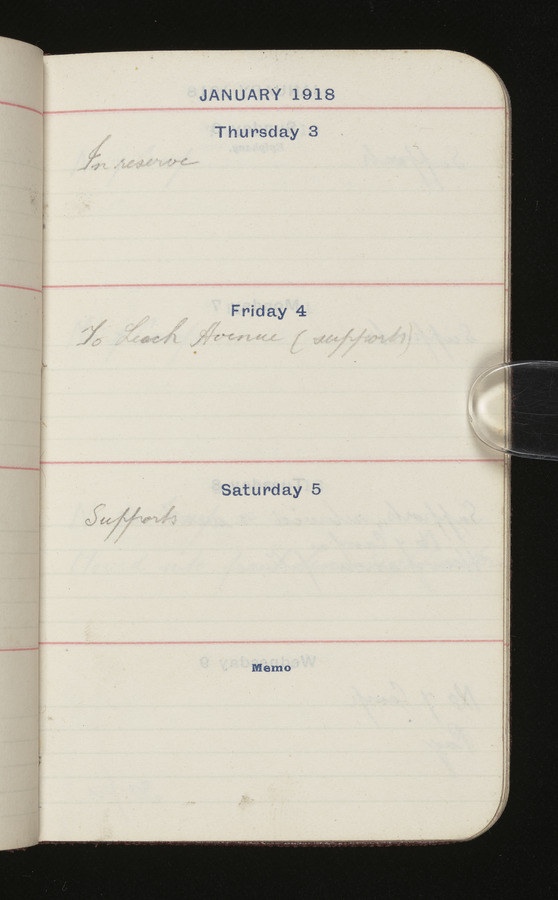 JANUARY 1918
Thursday 3
In reserve
Friday 4
To Leach Avenue (supports)
Saturday 5
Supports
Memo